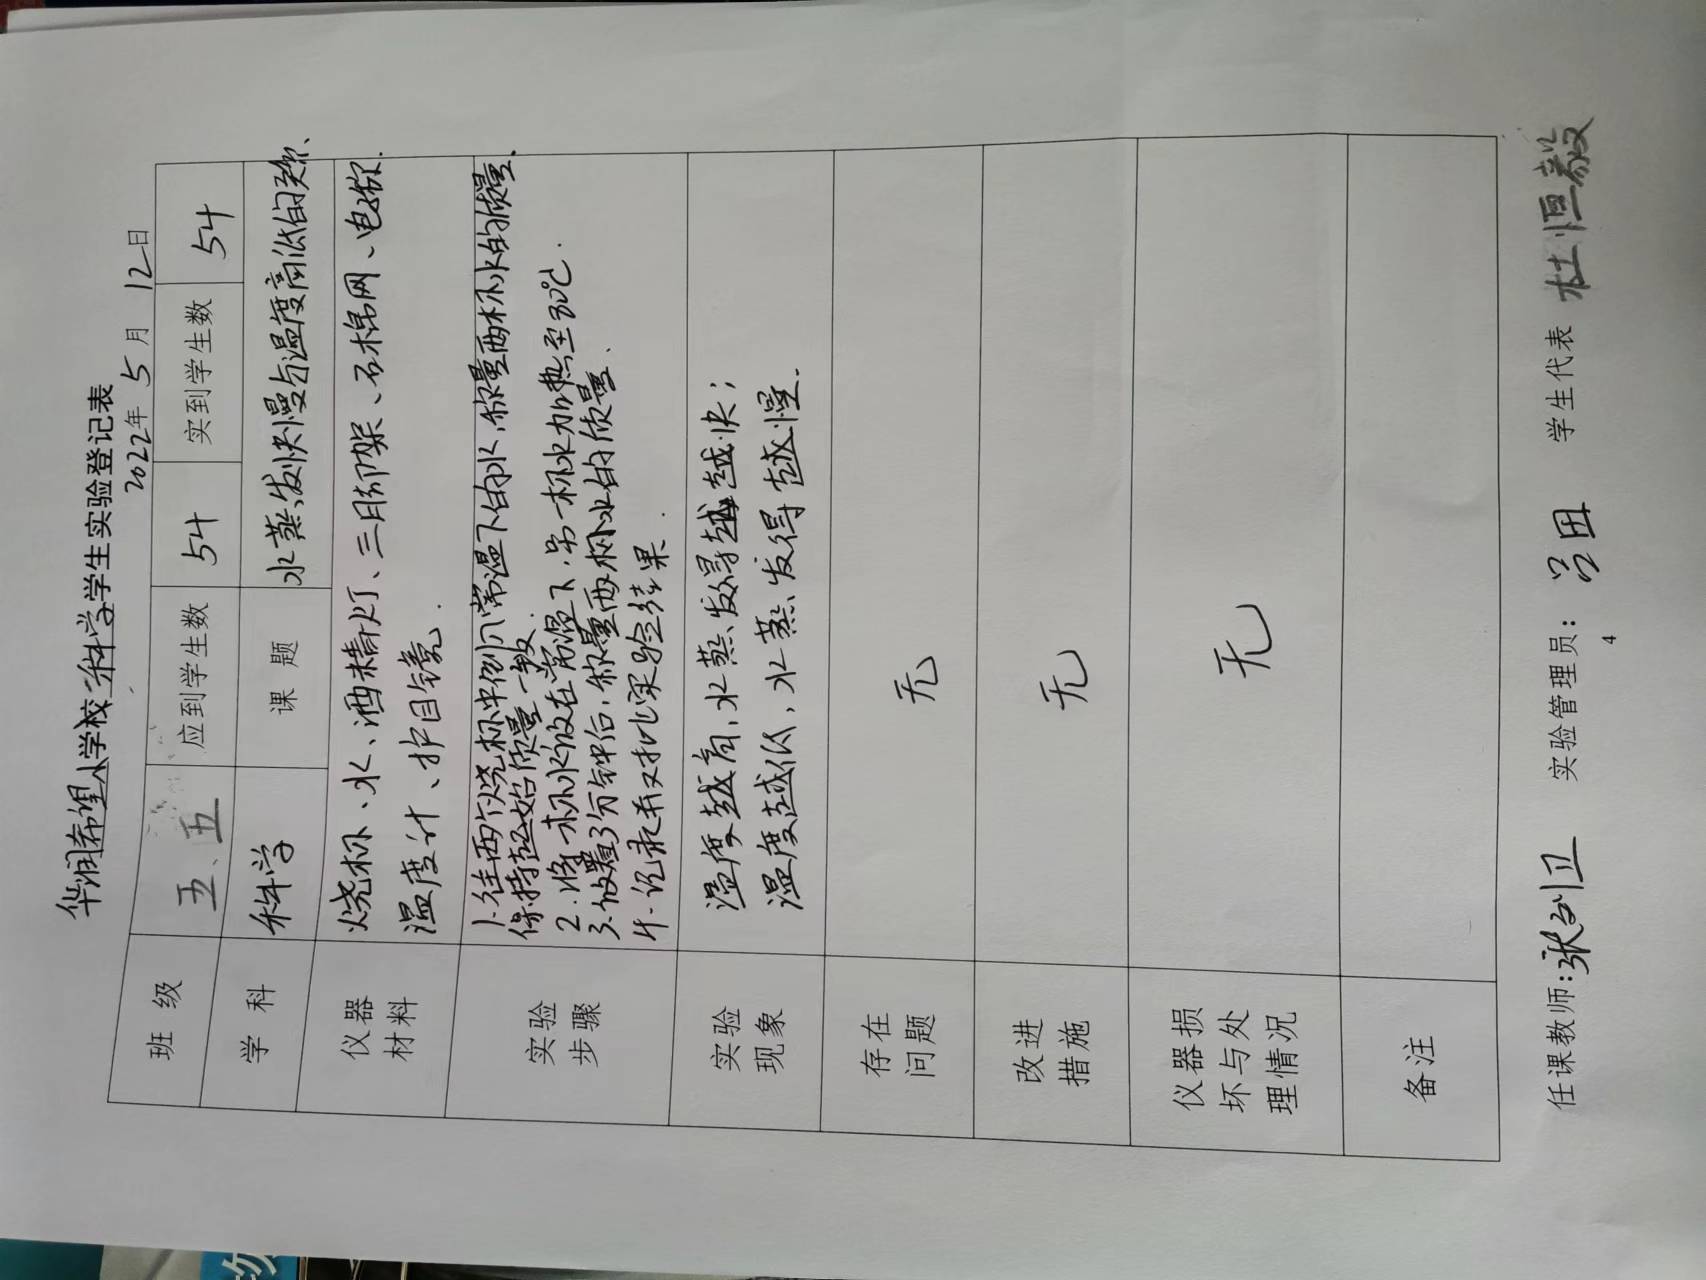 华润希望小学校 科学 学生实验登记表
2022年 5 月 12日
班 级 五、五 应到学生数 54 实到学生数 54
学 科 科学 课 题 水蒸发快慢与温度高低的关系、
仪器 烧杯、水、酒精灯、三脚架、石棉网、电子称.
材料 温度计、护目镜.
实验
步骤
1.往两个烧杯中倒入常温下的水,称量两杯水的质量.
保持起始质量一致.
2.将一杯水放在常温下.另一杯水加热至30℃.
3.放置3分钟后,称量两杯水的质量.
4.记录并对比实验结果.
实验 温度越高,水蒸发得越快;
现象 温度越低,水蒸发得越慢.
存在
问题
无
改进
措施
无
仪器损
坏与处
理情况
无
备注
任课教师: 张 卫 实验管理员: 田 学生代表 杜恒毅
4